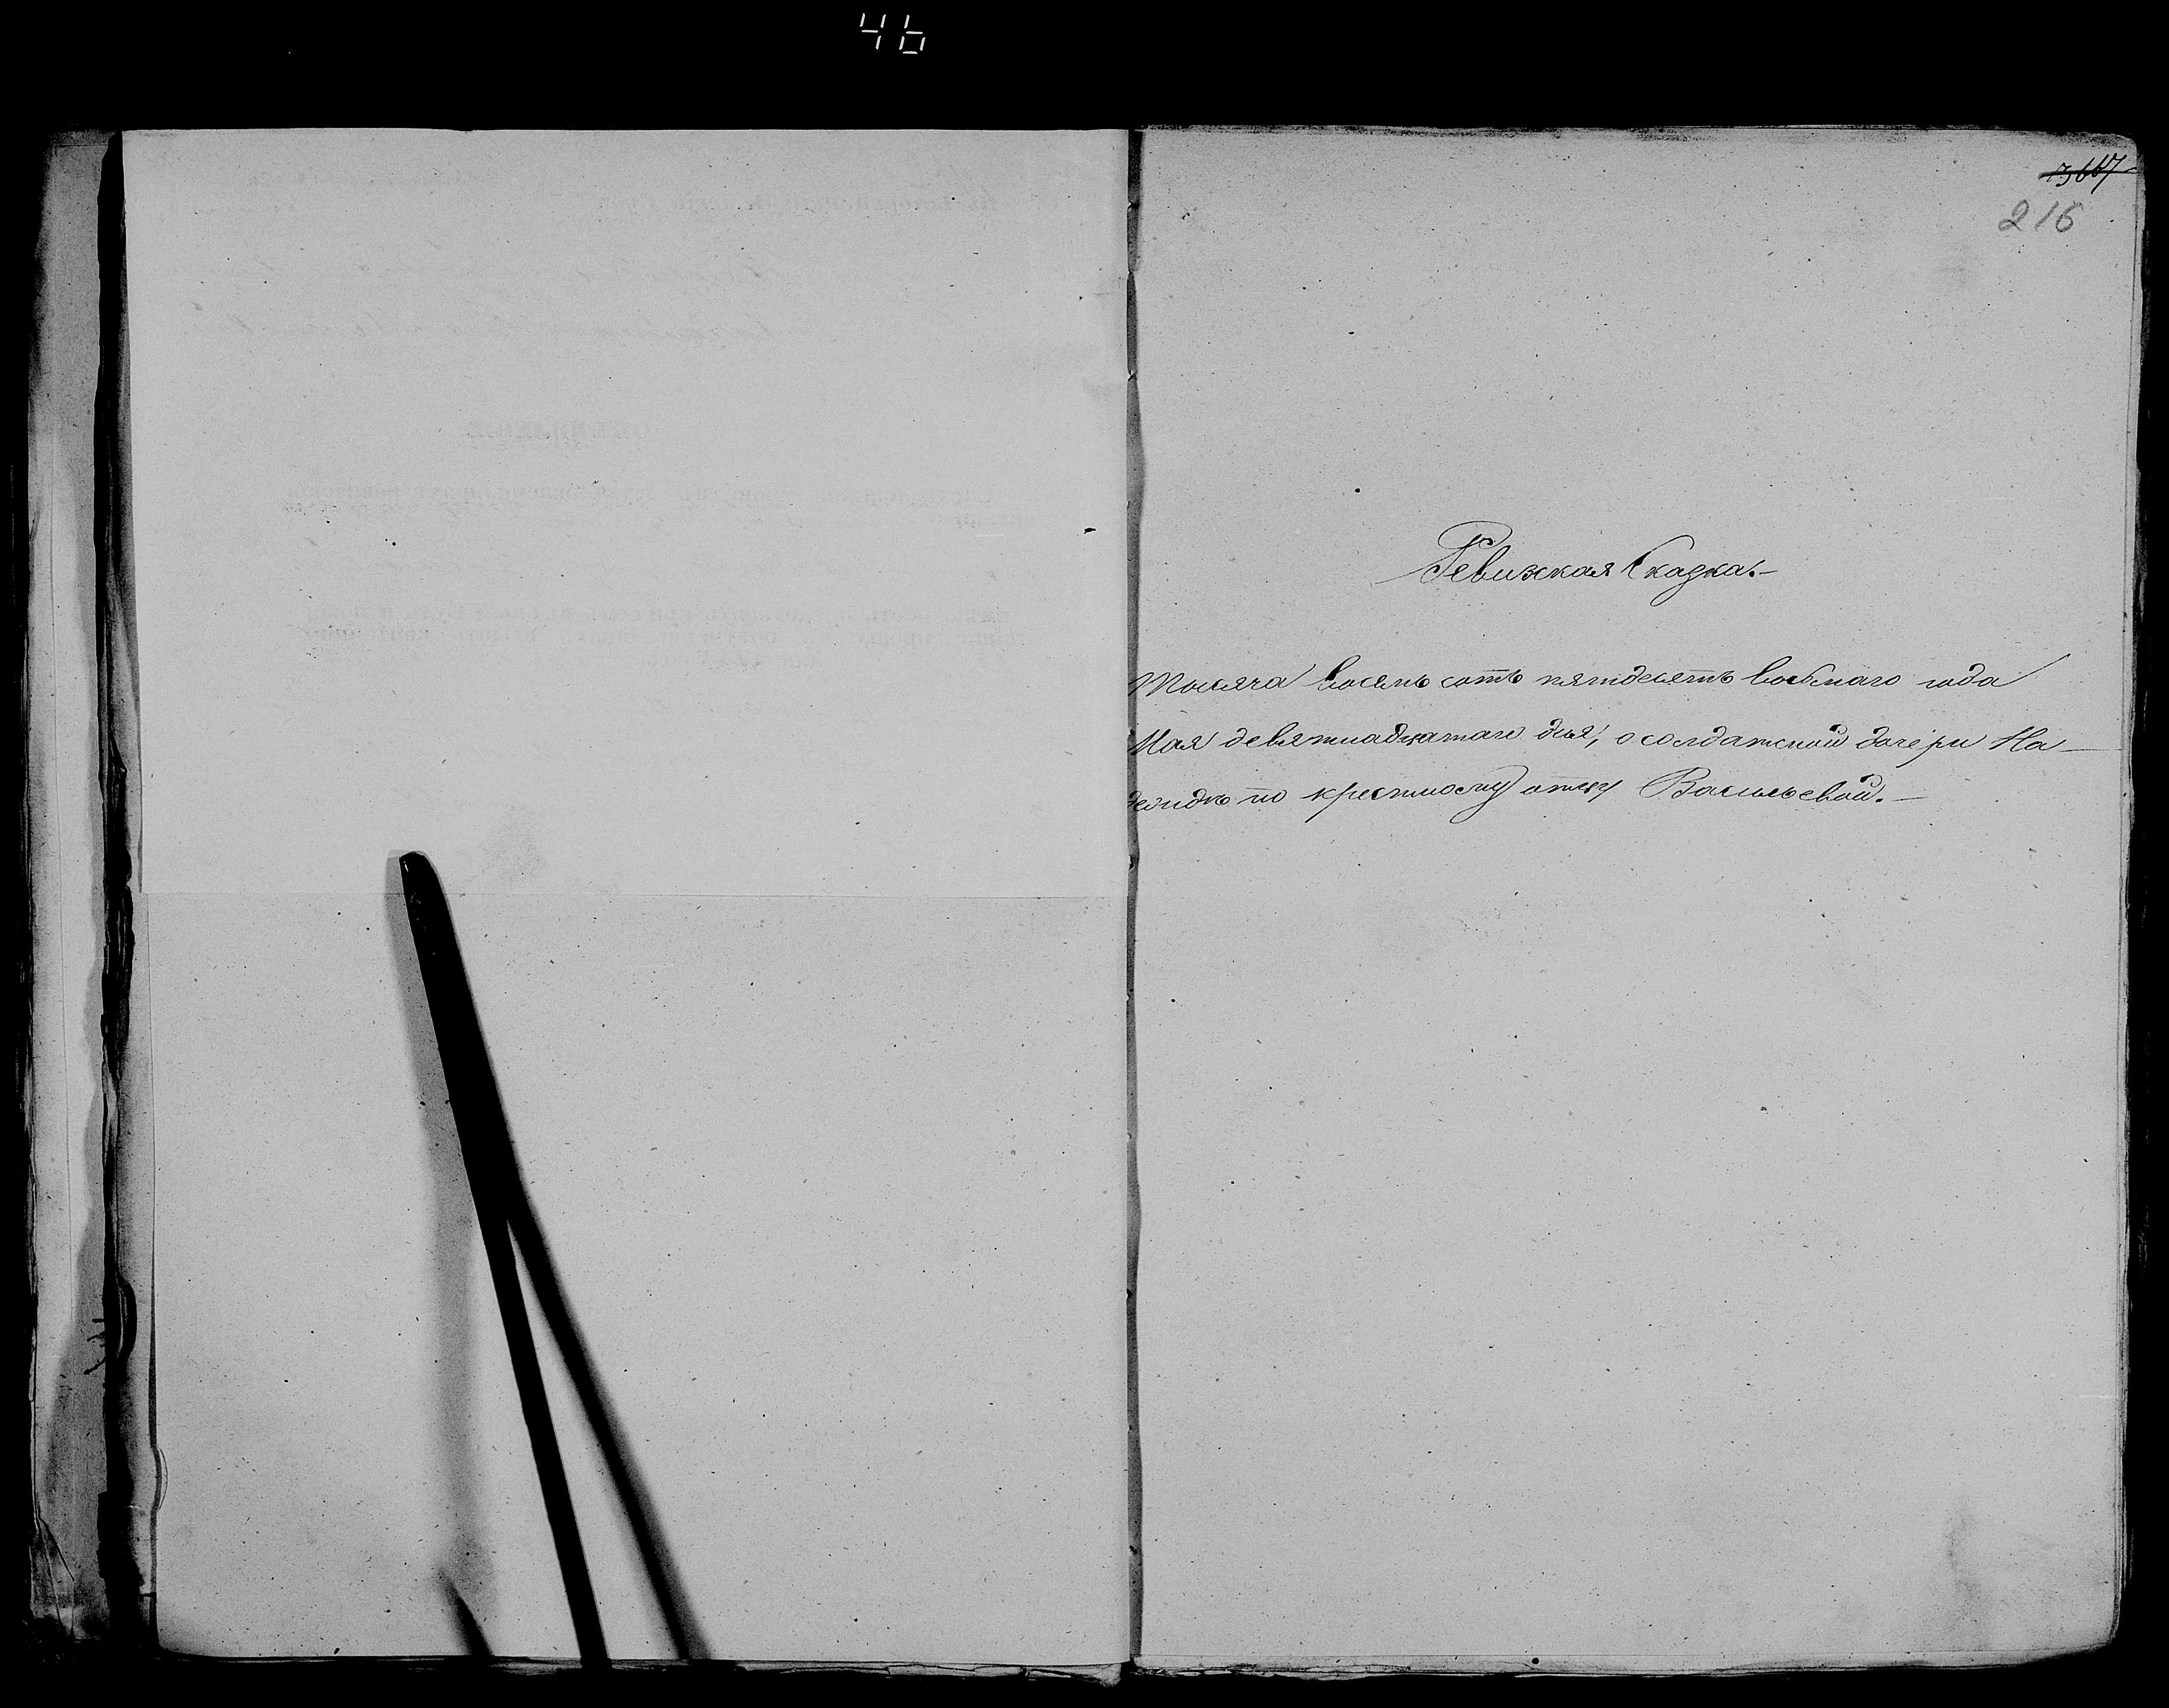 46
216
Ревизская Сказка.—
Тысяча восемь сотъ пятдесятъ восьмаго года
Мая девятнадцатаго дня, о солдатской дочери На-
деждѣ по крестному отцу Васильевой.—